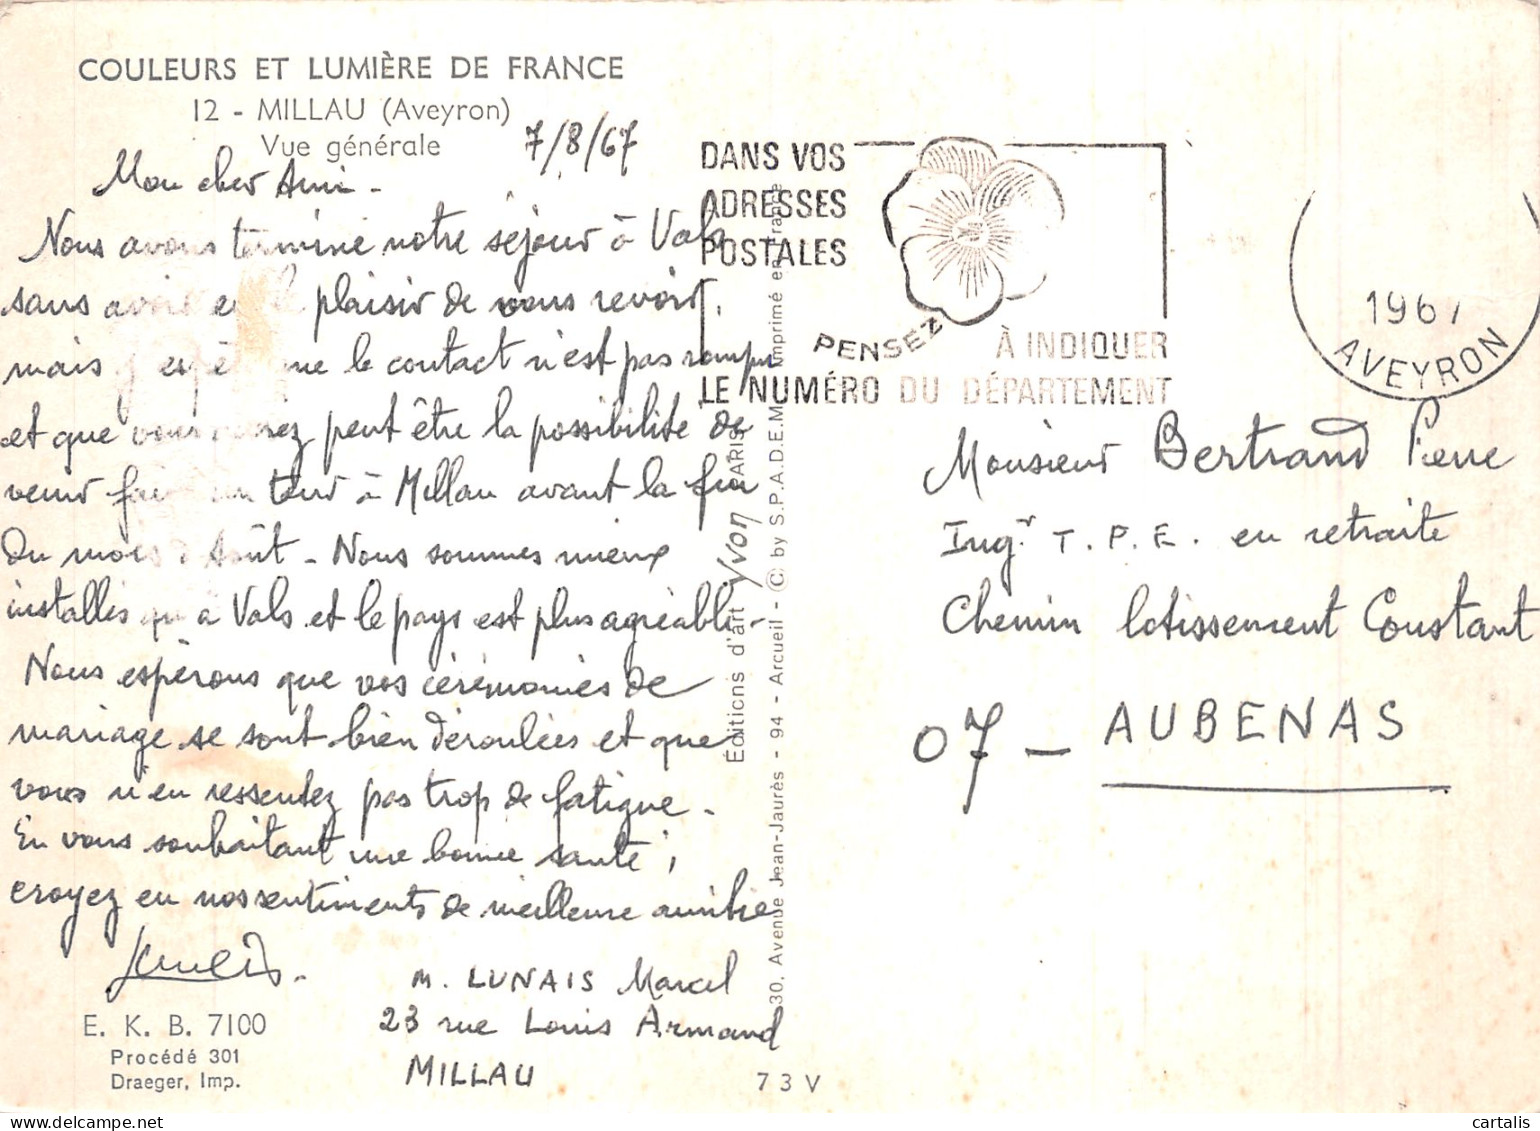 COULEURS ET LUMIÈRE DE FRANCE
12 - MILLAU (Aveyron)
Vue générale
7/8/67
Mon cher Ami -
Nous avons terminé notre séjour à Vals
sans avoir eu le plaisir de vous revoir,
mais j'espère que le contact n'est pas rompu
et que vous aurez peut être la possibilité de
venir faire un tour à Millau avant la fin
du mois d'Août - Nous sommes mieux
installés qu'à Vals et le pays est plus agréable -
Nous espérons que vos cérémonies de
mariage se sont bien déroulées et que
vous n'en ressentez pas trop de fatigue -
En vous souhaitant une bonne santé,
croyez en nos sentiments de meilleure amitié
M. LUNAIS Marcel
23 rue Louis Armand
MILLAU
E. K. B. 7100
Procédé 301
Draeger, Imp.
73 V
Éditions d'art Yvon PARIS
30, Avenue Jean-Jaurès - 94 - Arcueil - © by S.P.A.D.E.M. Imprimé en France
DANS VOS
ADRESSES
POSTALES
PENSEZ
À INDIQUER
LE NUMÉRO DU DÉPARTEMENT
1967
AVEYRON
Monsieur Bertrand Pierre
Ingr T.P.E. en retraite
Chemin lotissement Constant
07 - AUBENAS
cartalis